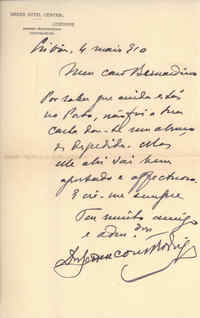 GRAND HOTEL CENTRAL
LISBONNE
Lisboa, 4 maio 910
Meu caro Bernardino
Por saber que ainda estás
no Porto, não fui a tua
casa dar-te um abraço
de despedida. Mas
elle ahi vai bem
apertado e affectuoso.
E crê-me sempre
Teu muito amigo
e